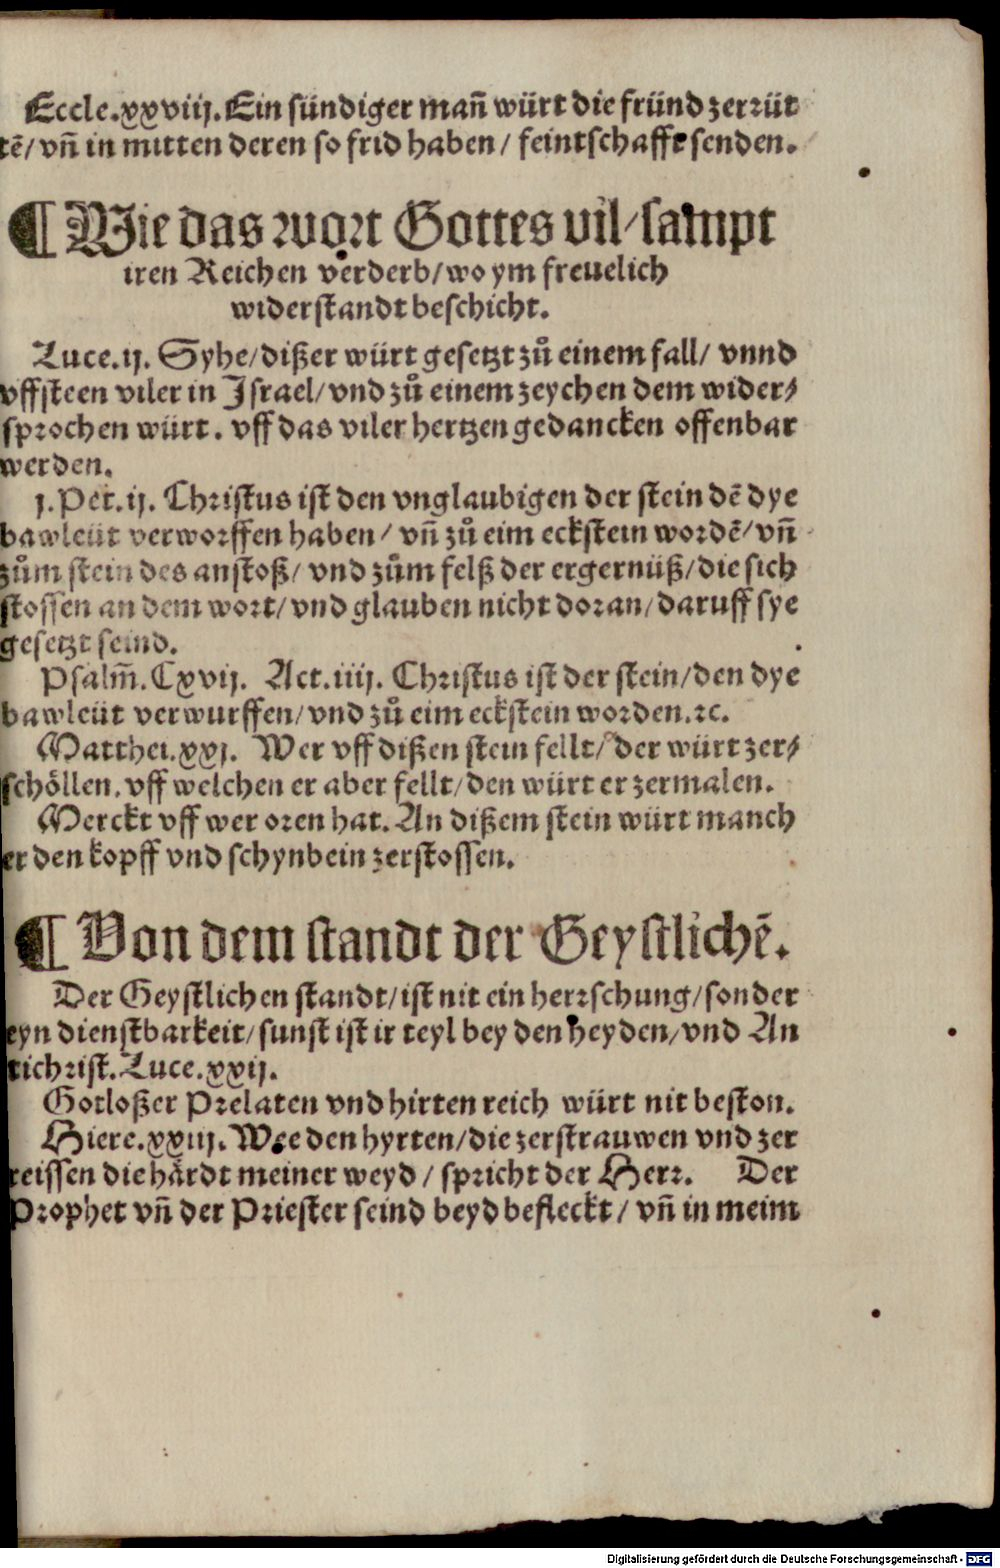 Eccle.xxviij. Ein sündiger mañ würt die fründ zerrüt
tē/ vñ in mitten deren so frid haben/ feintschafft senden.
¶ Wie das wort Gottes vil/sampt
iren Reichen verderb/wo ym freuelich
widerstandt beschicht.
Luce.ij. Syhe/dißer würt gesetzt zů einem fall/ vnnd
vffsteen viler in Israel/vnd zů einem zeychen dem wider⸗
sprochen würt. vff das viler hertzen gedancken offenbar
werden.
j.Pet.ij. Christus ist den vnglaubigen der stein dē dye
bawleüt verworffen haben/ vñ zů eim eckstein wordē/vñ
zům stein des anstoß/ vnd zům felß der ergernüß/die sich
stossen an dem wort/vnd glauben nicht doran/daruff sye
gesetzt seind.
Psalm̃.Cxvij. Act.iiij. Christus ist der stein/den dye
bawleüt verwurffen/vnd zů eim eckstein worden.ꝛc.
Matthei.xxj. Wer vff dißen stein fellt/der würt zer⸗
schöllen. vff welchen er aber fellt/den würt er zermalen.
Merckt vff wer oren hat. An dißem stein würt manch
er den kopff vnd schynbein zerstossen.
¶ Von dem standt der Geystlichē.
Der Geystlichen standt/ist nit ein herrschung/sonder
eyn dienstbarkeit/sunst ist ir teyl bey den heyden/vnd An
tichrist. Luce.xxij.
Gotloßer Prelaten vnd hirten reich würt nit beston.
Hiere.xxiij. Wee den hyrten/die zerstrauwen vnd zer
reissen die härdt meiner weyd/ spricht der Herr. Der
Prophet vñ der Priester seind beyd befleckt/ vñ in meim
Digitalisierung gefördert durch die Deutsche Forschungsgemeinschaft - DFG